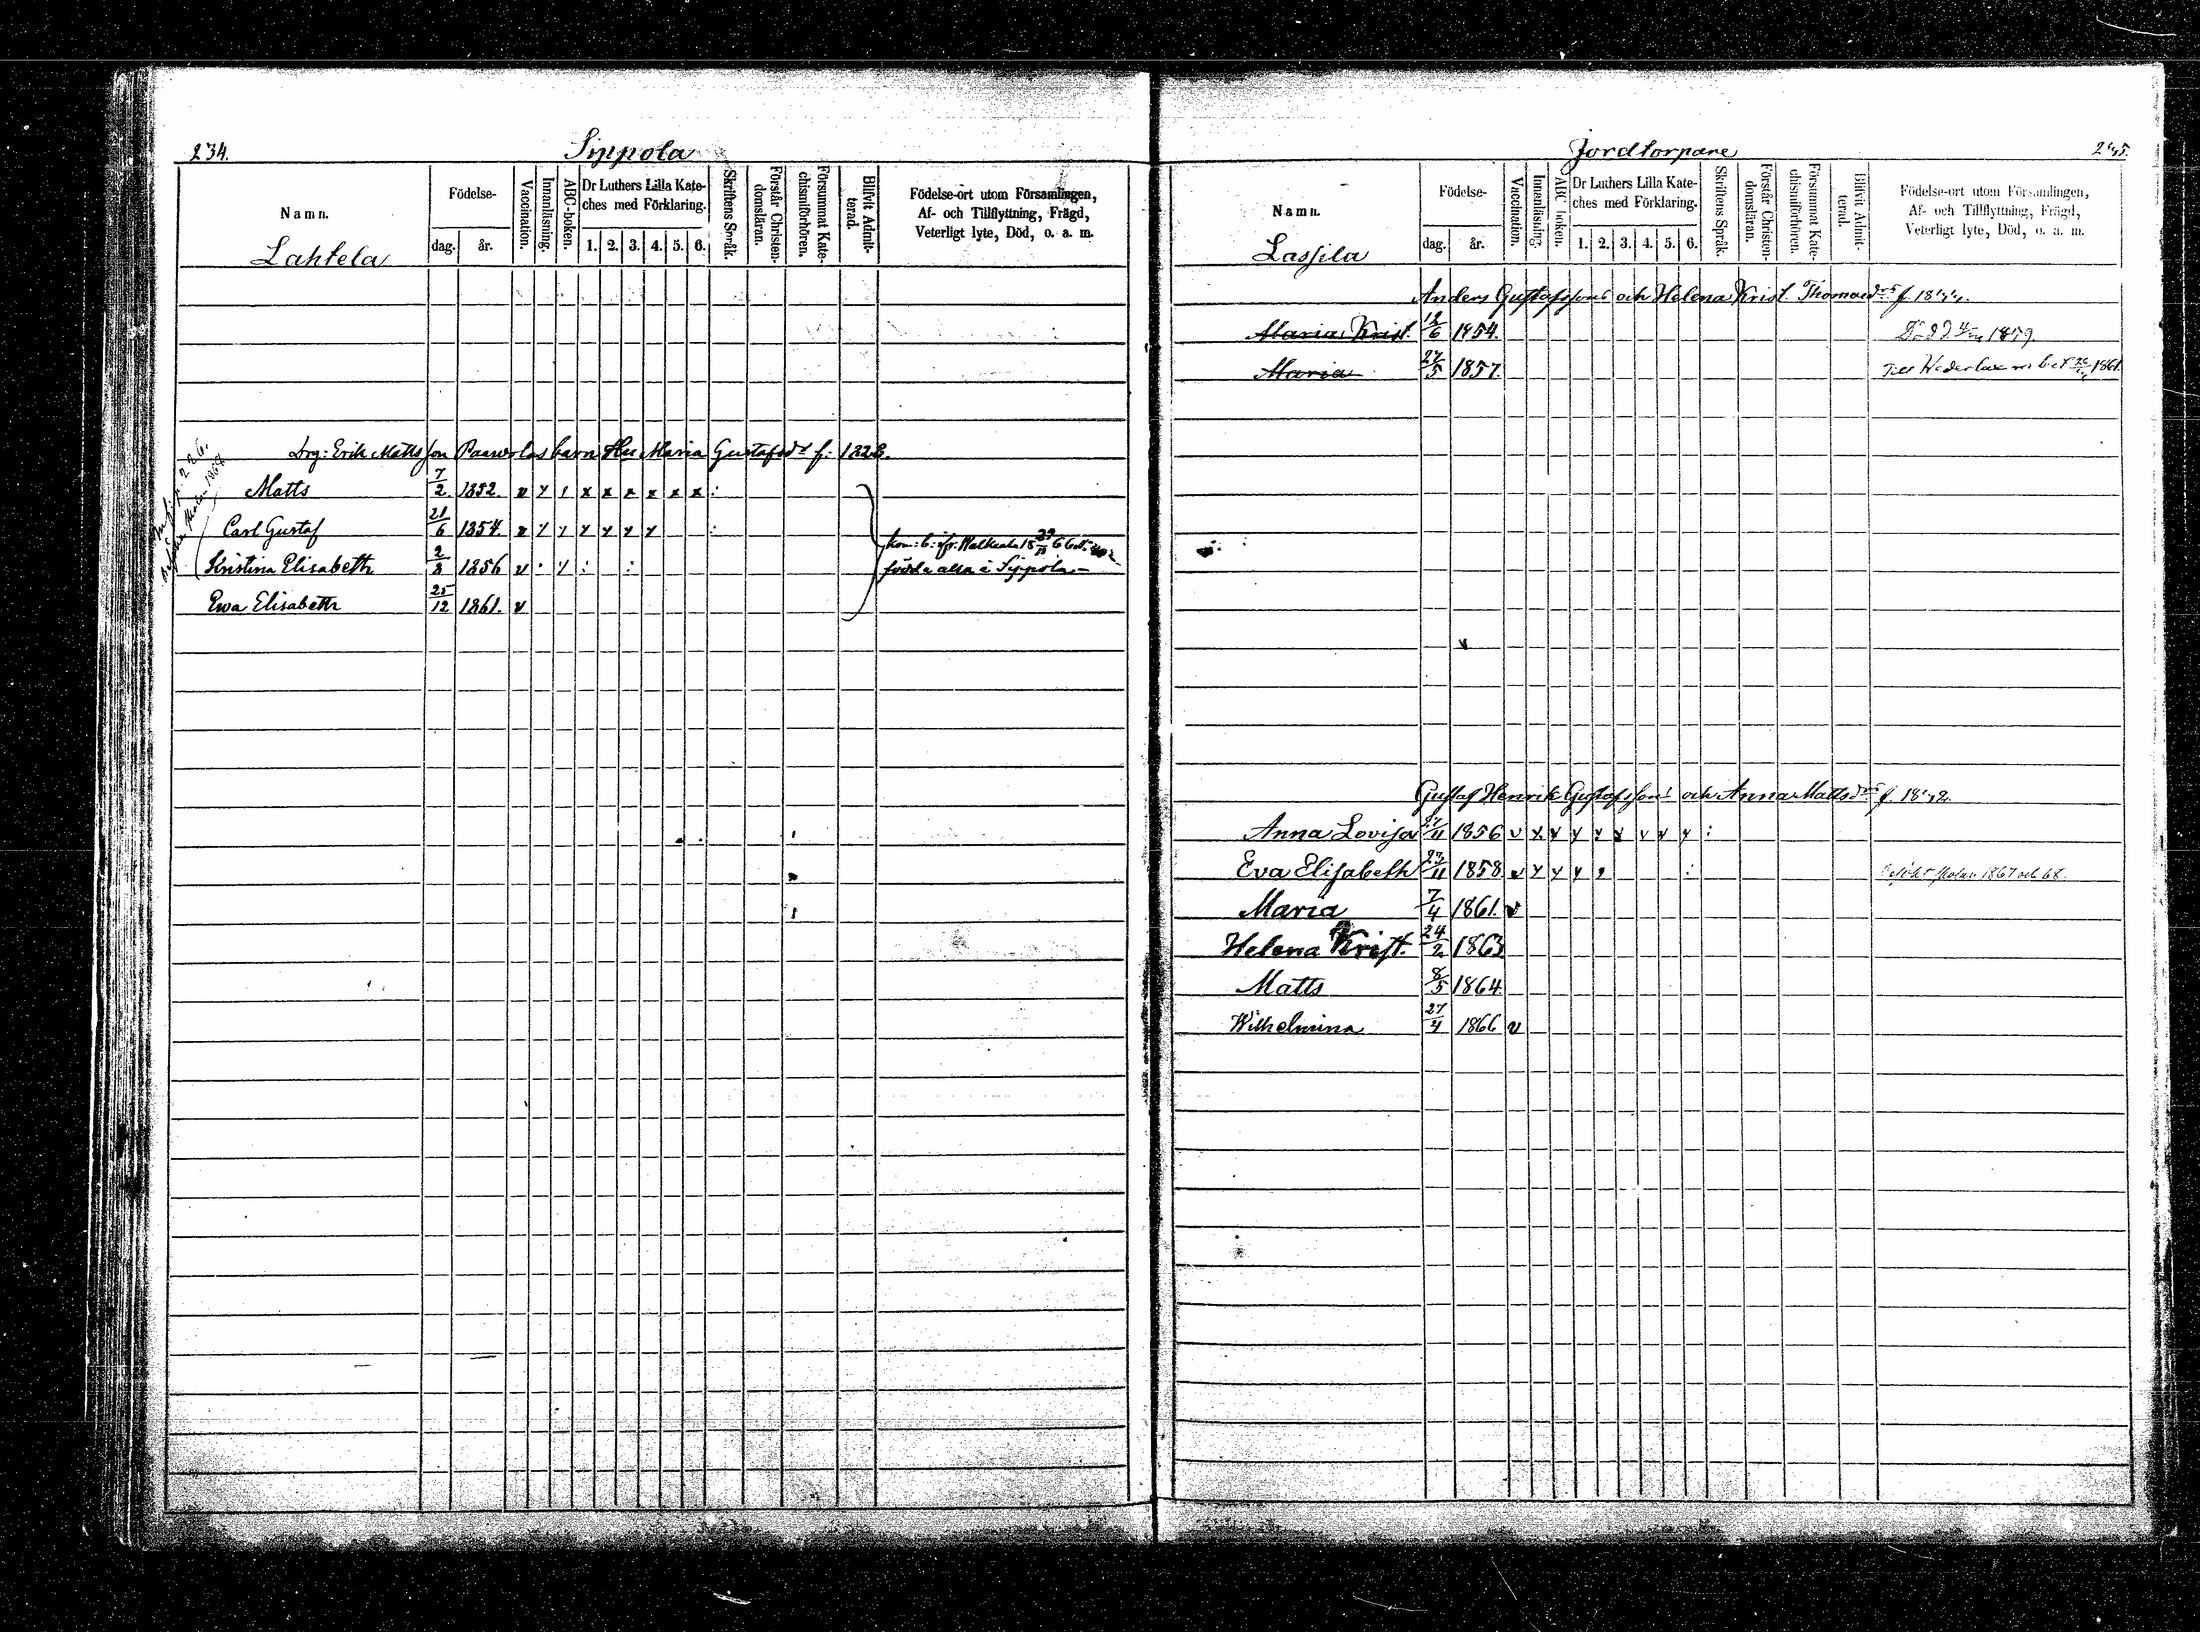 234.
Sippola
Namn.
Lahtela
Födelse-
dag.
år.
Vaccination.
Innanläsning.
ABC-boken.
Dr Luthers Lilla Kate-
ches med Förklaring.
1. 2. 3. 4. 5. 6.
Skriftens Språk.
Förstår Christen-
domsläran.
Försummat Kate-
chismiförhören.
Blifvit Admit-
terad.
Födelse-ort utom Församlingen,
Af- och Tillflyttning, Frägd,
Veterligt lyte, Död, o. a. m.
Drg: Erik Mattsson Paavolas barn Hu Maria Gustafsdr f. 1828.
Matts 7/2 1852. v y x x x x x x :
Carl Gustaf 21/6 1854. v y y y y y y :
Kristina Elisabeth 2/8 1856 v · y : :
födde alla i Sippola.—
Ewa Elisabeth 25/12 1861. v
Jordtorpare
Namn.
Lassila
Födelse-
dag.
år.
Vaccination.
Innanläsning.
ABC boken.
Dr Luthers Lilla Kate-
ches med Förklaring.
1. 2. 3. 4. 5. 6.
Skriftens Språk.
Förstår Christen-
domsläran.
Försummat Kate-
chismiförhören.
Blifvit Admit-
terad.
Födelse-ort utom Församlingen,
Af- och Tillflyttning, Frägd,
Veterligt lyte, Död, o. a. m.
Anders Gustafssons och Helena Krist. Thomasdrs f.
Maria Krist. 12/6 1854. Död 1859.
Maria 27/5 1857. Till Wederlax 1861.
Gustaf Henrik Gustafssons och Anna Mattsdrs f.
Anna Lovisa 1856 v x y y y y y y y :
Eva Elisabeth 1858 v y y y :
skolan 1867 och 68.
Maria 7/4 1861. v
Helena Krist. 24/2 1863
Matts 8/5 1864.
Wilhelmina 27/4 1866 v